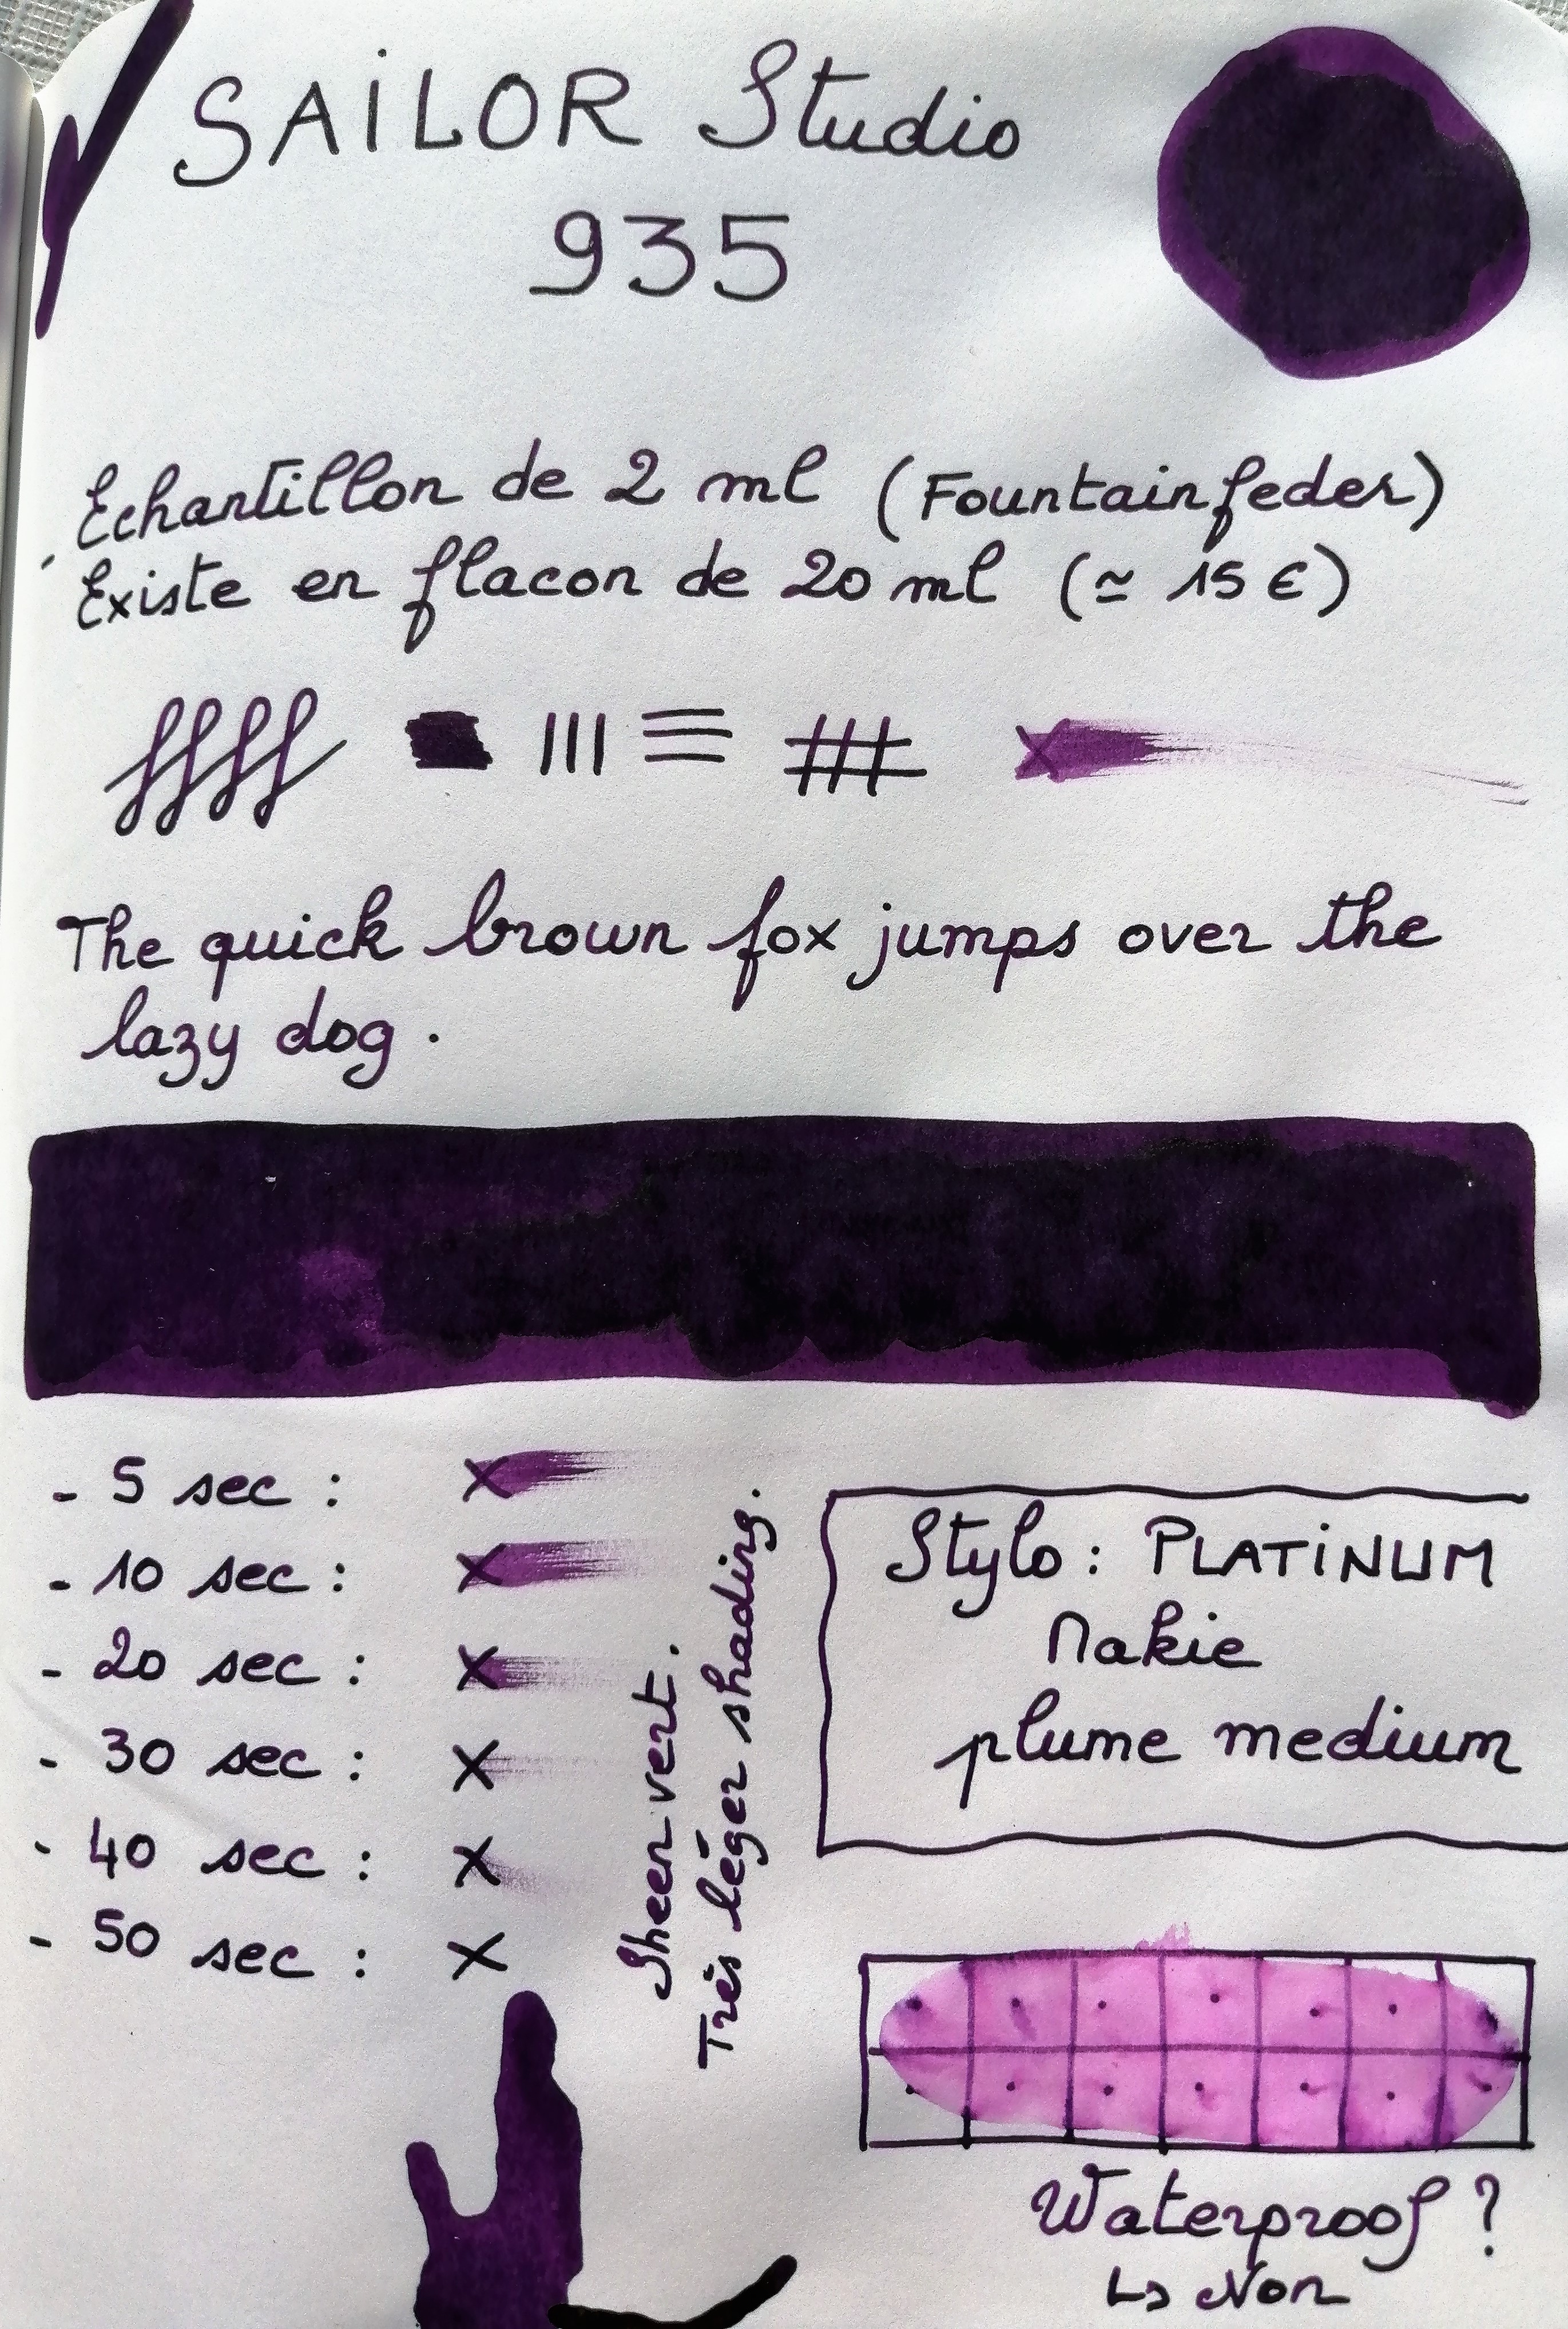 SAILOR Studio
935
Echantillon de 2 ml (Fountainfeder)
Existe en flacon de 20 ml (≃ 15 €)
The quick brown fox jumps over the
lazy dog.
- 5 sec : X
- 10 sec : X
- 20 sec : X
- 30 sec : X
- 40 sec : X
- 50 sec : X
Sheen vert.
Très léger shading.
Stylo : PLATINUM
Nakie
plume medium
Waterproof ?
↳ Non